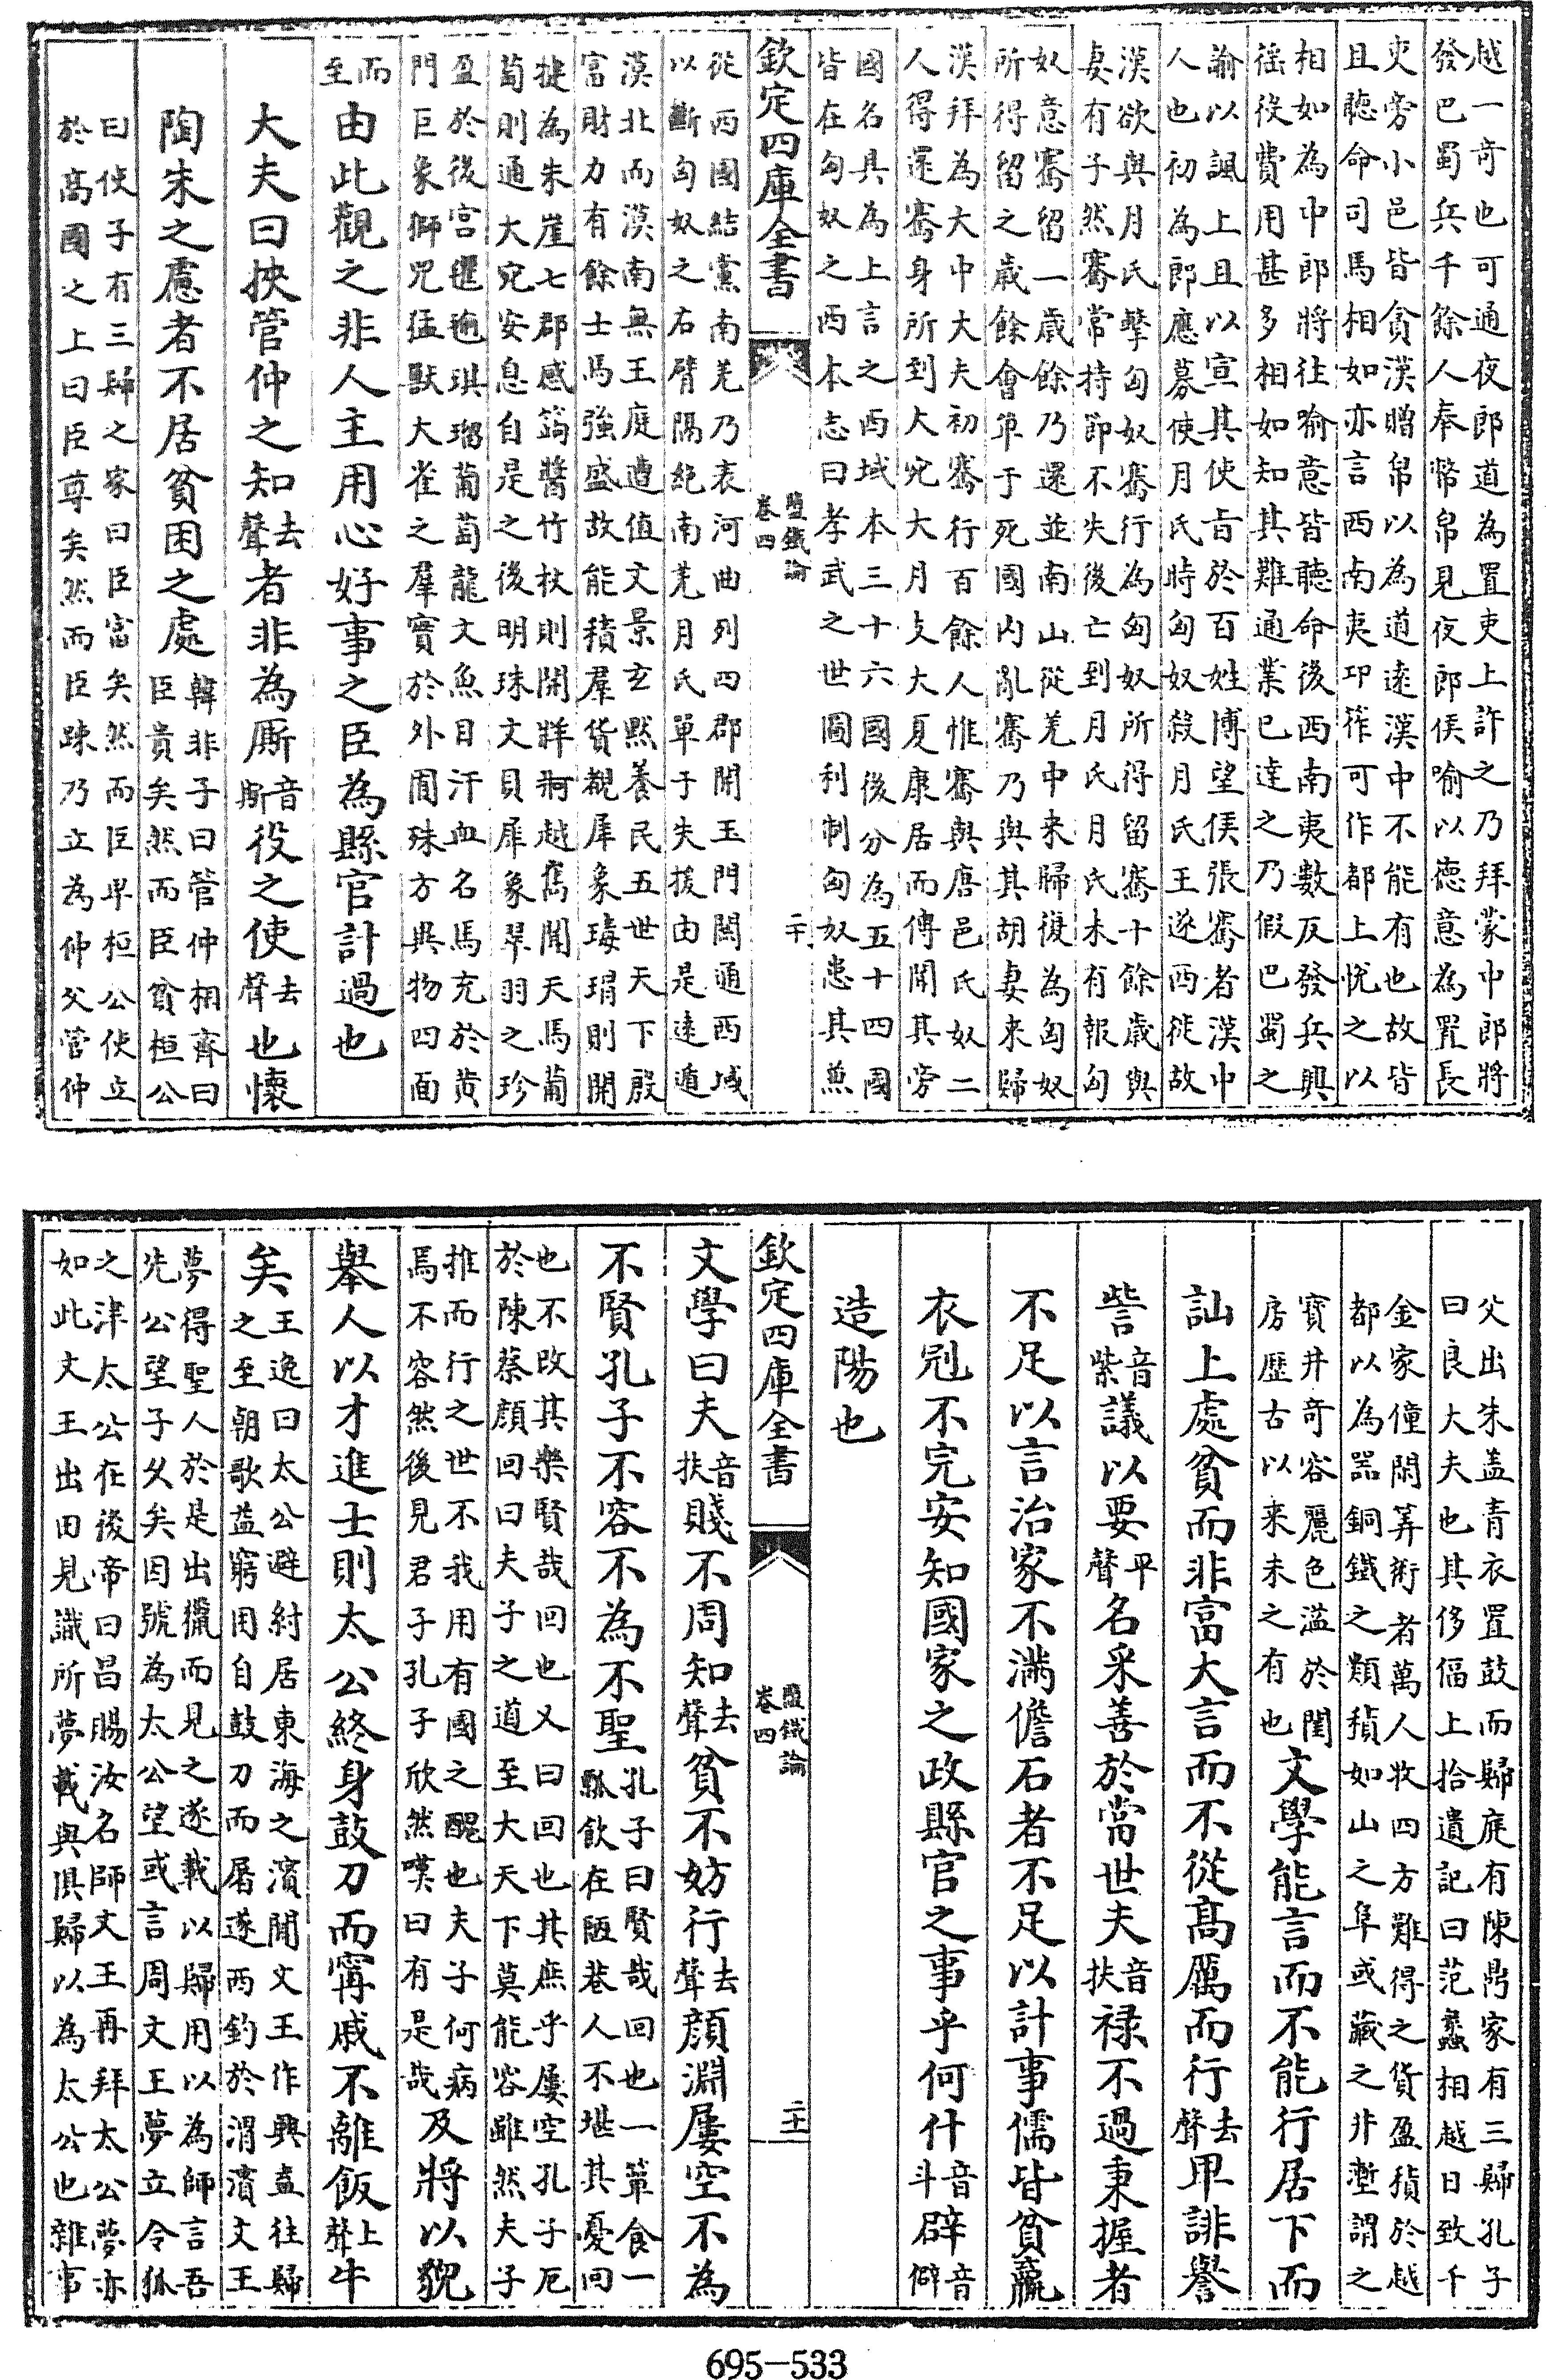 越一奇也可通夜郎道為置吏上許之乃拜蒙中郎將
發巴蜀兵千餘人奉幣帛見夜郎侯喻以德意為置長
吏旁小邑皆貪漢贈帛以為道逺漢中不能有也故皆
且聽命司馬相如亦言西南夷卭筰可作都上悅之以
相如為中郎將往喻意皆聽命後西南夷數反發兵興
徭役費用甚多相如知其難通業已達之乃假巴蜀之
諭以諷上且以宣其使㫖於百姓博望侯張騫者漢中
人也初為郎應募使月氏時匈奴殺月氏王遂西徙故
漢欲與月氏擊匈奴騫行為匈奴所得留騫十餘歲與
妻有子然騫常持節不失後亡到月氏月氏未有報匈
奴意騫留一歲餘乃還並南山從羌中來歸復為匈奴
所得留之歲餘會單于死國内亂騫乃與其胡妻来歸
漢拜為大中大夫初騫行百餘人惟騫與唐邑氏奴二
人得還騫身所到大宛大月攴大夏康居而傳聞其旁
國名具為上言之西域本三十六國後分為五十四國
皆在匈奴之西本志曰孝武之世圖利制匈奴患其兼
欽定四庫全書
鹽鐵論
卷四
二十
從西國結黨南羌乃表河曲列四郡開玉門關通西域
以斷匈奴之右臂隔絶南羌月氏單于失援由是逺遁
漠北而漠南無王庭遭值文景玄黙養民五世天下殷
富財力有餘士馬強盛故能積羣貨覩犀象瑇瑁則開
揵為朱崖七郡感蒟醬竹杖則開牂牁越嶲聞天馬葡
萄則通大宛安息自是之後明珠文貝犀象翠羽之珍
盈於後宫䮾駼琪瑠葡萄龍文魚目汗血名馬充於黄
門巨象獅咒猛獸大雀之羣實於外囿殊方異物四面
而
至由此觀之非人主用心好事之臣為縣官計過也
大夫曰挾管仲之知去聲者非為厮音斯役之使去聲也懷
陶朱之慮者不居貧困之處韓非子曰管仲相齊曰
臣貴矣然而臣貧桓公
曰使子有三歸之家曰臣富矣然而臣卑桓公使立
於髙國之上曰臣尊矣然而臣踈乃立為仲父管仲
父出朱盖青衣置鼓而歸庭有陳鼎家有三歸孔子
曰良大夫也其侈偪上拾遺記曰范蠡相越日致千
金家僮閑筭術者萬人收四方難得之貨盈積於越
都以為器銅鐵之類積如山之阜或藏之井塹謂之
寳井奇容麗色溢於閨
房歴古以来未之有也文學能言而不能行居下而
訕上處貧而非富大言而不從髙厲而行去聲卑誹譽
訾音紫議以要平聲名采善於當世夫音扶禄不過秉握者
不足以言治家不滿儋石者不足以計事儒皆貧羸
衣冠不完安知國家之政縣官之事乎何什音斗辟音僻
造陽也
欽定四庫全書
鹽鐵論
卷四
二十一
文學曰夫音扶賤不周知去聲貧不妨行去聲顔淵屢空不為
不賢孔子不容不為不聖孔子曰賢哉回也一簞食一
瓢飲在陋巷人不堪其憂回
也不改其樂賢哉回也又曰回也其庶乎屢空孔子厄
於陳蔡顔回曰夫子之道至大天下莫能容雖然夫子
推而行之世不我用有國之醜也夫子何病
焉不容然後見君子孔子欣然嘆曰有是哉及將以貌
舉人以才進士則太公終身鼓刀而甯戚不離飯上聲牛
矣王逸曰太公避紂居東海之濱聞文王作興盍往歸
之至朝歌益窮困自鼓刀而屠遂西釣於渭濱文王
夢得聖人於是出獵而見之遂載以歸用以為師言吾
先公望子久矣因號為太公望或言周文王夢立令狐
之津太公在後帝曰昌賜汝名師文王再拜太公夢亦
如此文王出田見識所夢載與俱歸以為太公也雜事
695-533